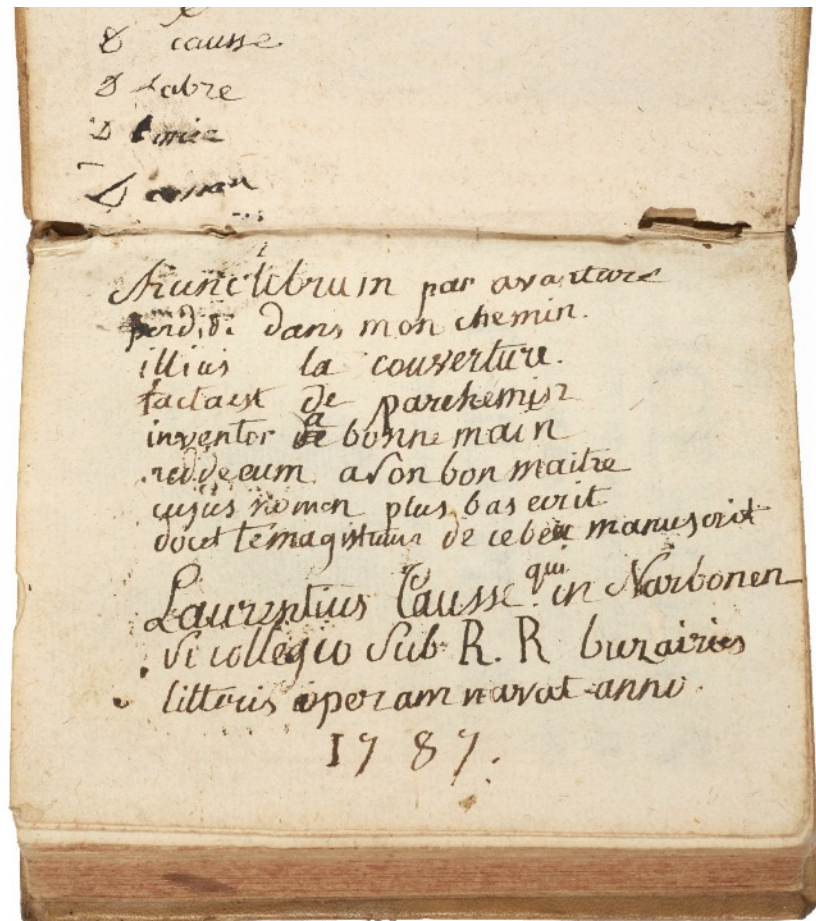 D causse
D fabre
D
D
hunc librum par avanture
perdidi dans mon chemin.
illius la couverture.
facta est de parchemin
inventor de bonne main
redde eum a son bon maitre
cujus nomen plus bas ecrit
docet te magistrum de ce beau manuscrit
Laurentius Causse qui in Narbonen
si collegio sub R. R
litteris operam navat anno.
1787.